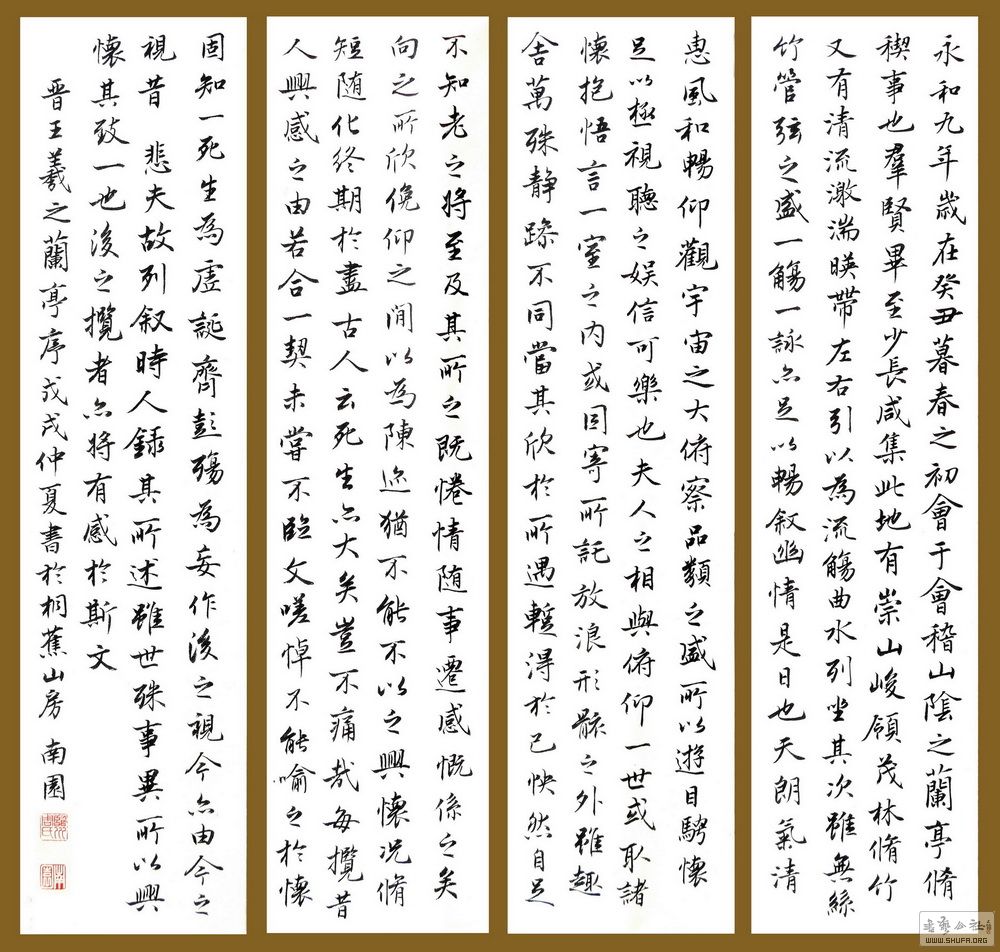 永和九年歲在癸丑暮春之初會于會稽山陰之蘭亭脩
稧事也羣賢畢至少長咸集此地有崇山峻領茂林脩竹
又有清流激湍暎帶左右引以為流觴曲水列坐其次雖無絲
竹管弦之盛一觴一詠亦足以暢叙幽情是日也天朗氣清
惠風和暢仰觀宇宙之大俯察品類之盛所以遊目騁懷
足以極視聽之娛信可樂也夫人之相與俯仰一世或取諸
懷抱悟言一室之內或因寄所託放浪形骸之外雖趣
舍萬殊静躁不同當其欣於所遇蹔得於己怏然自足
不知老之將至及其所之既惓情随事遷感慨係之矣
向之所欣俛仰之間以為陳迹猶不能不以之興懷況脩
短随化終期於盡古人云死生亦大矣豈不痛哉每攬昔
人興感之由若合一契未嘗不臨文嗟悼不能喻之於懷
固知一死生為虛誕齊彭殤為妄作後之視今亦由今之
視昔 悲夫故列叙時人錄其所述雖世殊事異所以興
懷其致一也後之攬者亦將有感於斯文
晋王羲之蘭亭序戊戌仲夏書於桐蕉山房 南園
WWW.SHUFA.ORG